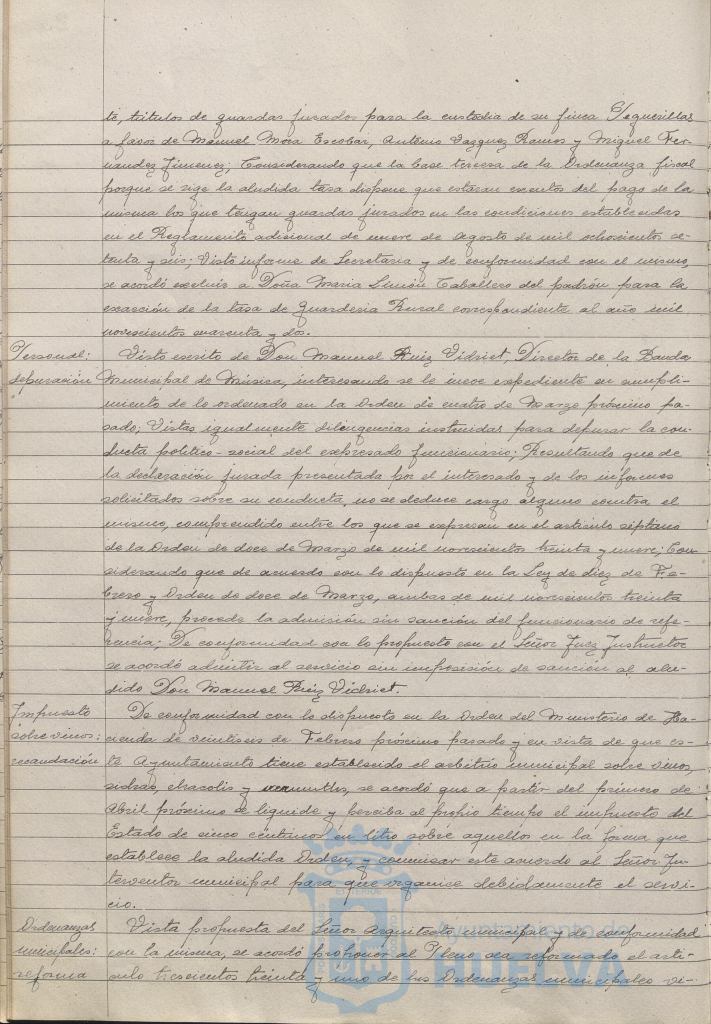 te, títulos de guardas jurados para la custodia de su finca Peguerillas
a favor de Manuel Mora Escobar, Antonio Vazquez Ramos y Miguel Fer-
nandez Jimenez; Considerando que la base tercera de la Ordenanza fiscal
porque se rige la aludida tasa dispone que estaran exentos del pago de la
misma los que tengan guardas jurados en las condiciones establecidas
en el Reglamento adicional de nueve de agosto de mil ochocientos se-
tenta y seis; Visto informe de Secretaria y de conformidad con el mismo,
se acordó excluir a Doña Maria Limón Caballero del padrón para la
exacción de la tasa de Guarderia Rural correspondiente al año mil
novecientos cuarenta y dos.
Personal:
depuración
Visto escrito de Don Manuel Ruiz Vidriet, Director de la Banda
Municipal de Música, interesando se le incoe expediente en cumpli-
miento de lo ordenado en la Orden de cuatro de Marzo próximo pa-
sado; Vistas igualmente diligencias instruidas para depurar la con-
ducta politico-social del expresado funcionario; Resultando que de
la declaración jurada presentada por el interesado y de los informes
solicitados sobre su conducta, no se deduce cargo alguno contra el
mismo, comprendido entre los que se expresan en el articulo séptimo
de la Orden de doce de Marzo de mil novecientos treinta y nueve; Con-
siderando que de acuerdo con lo dispuesto en la Ley de diez de Fe-
brero y Orden de doce de Marzo, ambas de mil novecientos treinta
y nueve, procede la admisión sin sanción del funcionario de refe-
rencia; De conformidad con lo propuesto con el Señor Juez Instructor
se acordó admitir al servicio sin imposición de sanción al alu-
dido Don Manuel Ruiz Vidriet.
Impuesto
sobre vinos:
recaudación
De conformidad con lo dispuesto en la Orden del Ministerio de Ha-
cienda de veintiseis de Febrero próximo pasado y en vista de que es-
te Ayuntamiento tiene establecido el arbitrio municipal sobre vinos,
sidras, chacolis y vermuths, se acordó que a partir del primero de
Abril próximo se liquide y perciba al propio tiempo el impuesto del
Estado de cinco centimos en litro sobre aquellos en la forma que
establece la aludida Orden, y comunicar este acuerdo al Señor In-
terventor municipal para que organice debidamente el servi-
cio.
Ordenanzas
municipales:
reforma
Vista propuesta del Señor Arquitecto municipal y de conformidad
con la misma, se acordó proponer al Pleno sea reformado el arti-
culo trescientos treinta y uno de las Ordenanzas municipales vi-
Ayuntamiento de
HUELVA